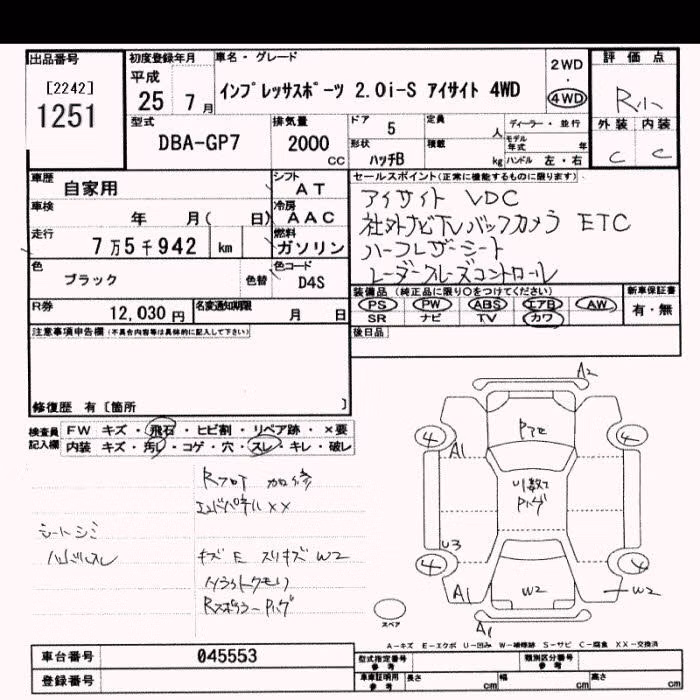 出品番号 初度登録年月 車名・グレード 2WD 評価点
[2242] 平成
1251 25 7月 インプレッサスポーツ 2.0i-S アイサイト 4WD ・ 4WD R小
型式 排気量 ドア 定員 ディーラー・並行 外装 内装
DBA-GP7 2000 CC 5 人 モデル年式 年 C C
形状 積載
ハッチB kg ハンドル 左・右
車歴 自家用 シフト AT セールスポイント(正常に機能するものに限ります)
車検 年 月( 日) 冷房 AAC アイサイト VDC
走行 7万5千942 km 燃料 ガソリン 社外ナビTVバックカメラ ETC
ハーフレザーシート
色 ブラック 色替 色コード D4S レーダークルーズコントロール
R券 12,030円 名変通知期限 月 日 装備品(純正品に限り○をつけてください) 新車保証書
PS PW ABS エアB AW 有・無
SR ナビ TV カワ
注意事項申告欄(不具合内容等は具体的に記入して下さい) 後日品
修復歴 有〔箇所 〕
検査員記入欄 FW キズ・飛石・ヒビ割・リペア跡・×要
内装 キズ・汚れ・コゲ・穴・スレ・キレ・破レ
Rフロア 加修
エンドパネル××
シートシミ
ハンドルスレ キズE スリキズW2
ヘッドライトクモリ
A2
4 4
A1
U3
4 4
A1 W2 W2
A1
スペア
A-キズ E-エクボ U-凹み W-補修跡 S-サビ C-腐食 XX-交換済
車台番号 045553 型式指定番号 参考 類別区分番号 参考
登録番号 車庫証明用 参考 長さ cm 幅 cm 高さ cm